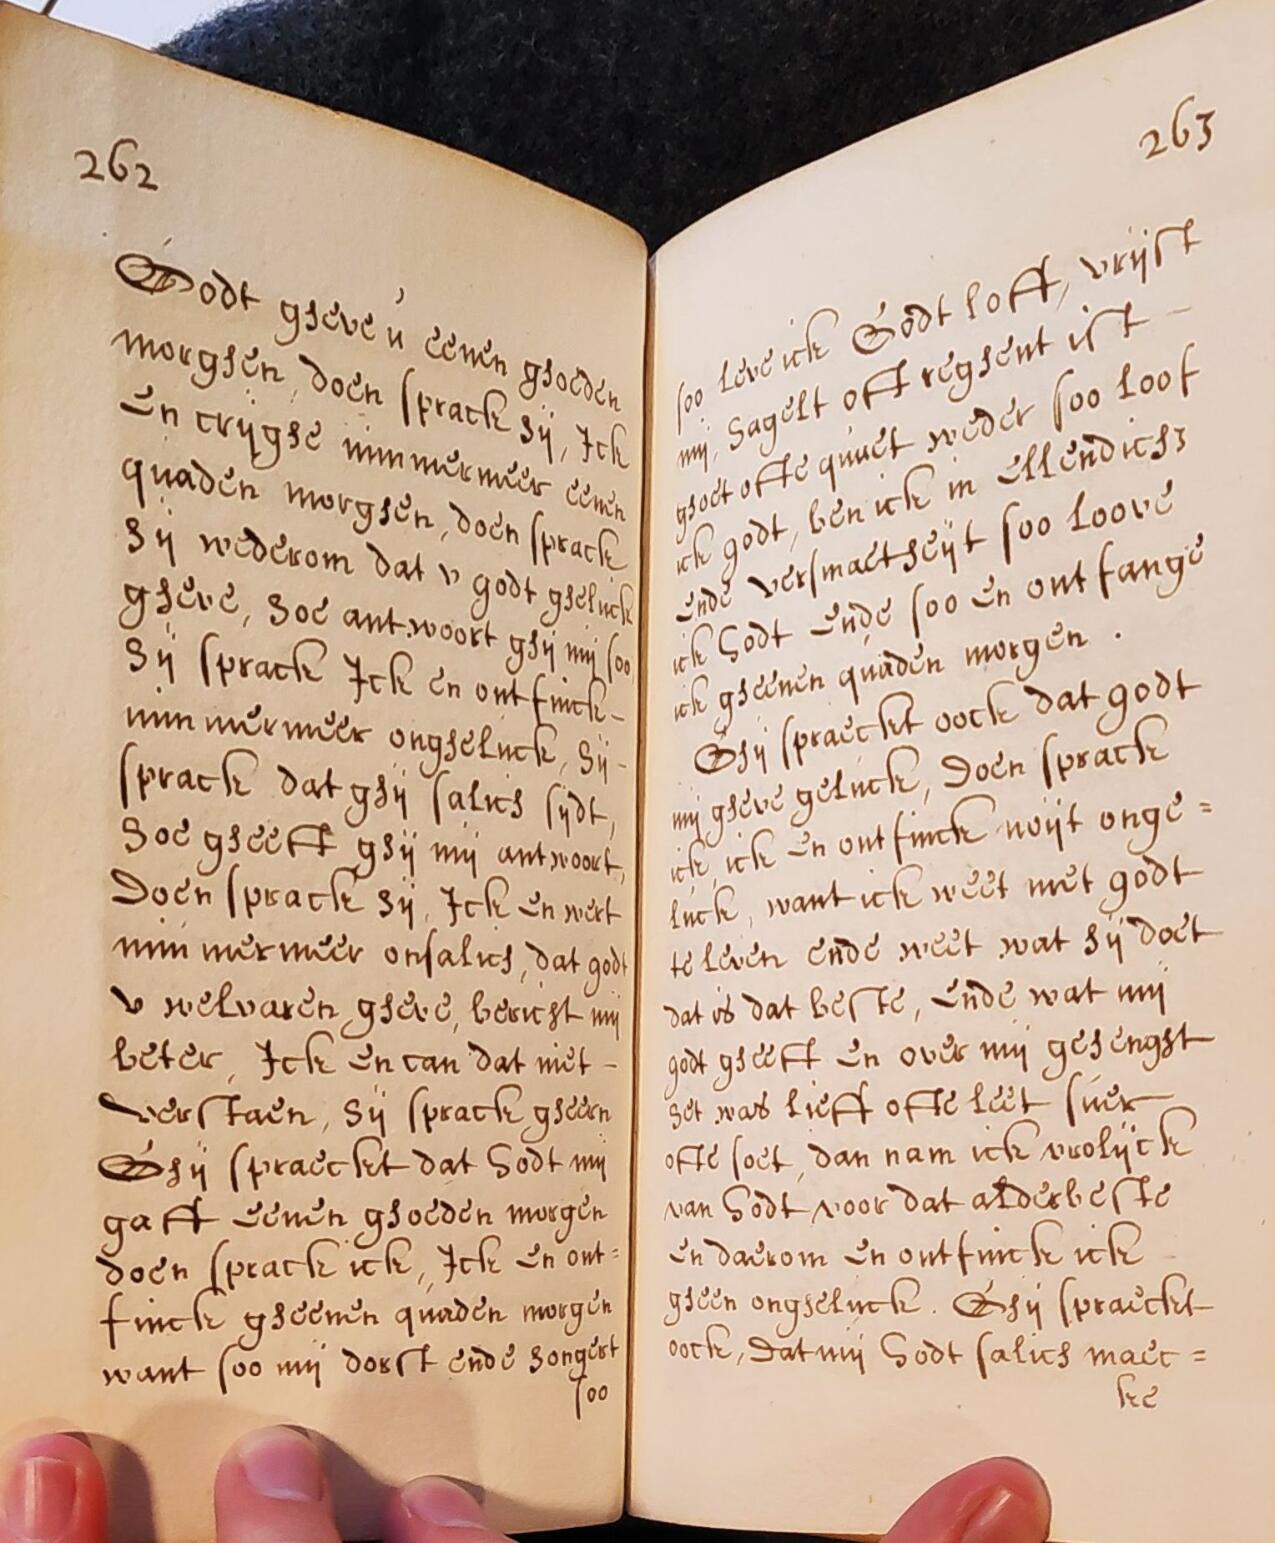 262
Godt gheve ú eenen ghoeden
morghen, doen sprack hij, Ick
en crijghe nimmermeer eenen
quaden morghen, doen sprack
hij wederom dat v godt gheluck
gheve, hoe antwoort ghij mij soo
hij sprack Ick en ontfinck-
nimmermeer ongheluck, hij-
sprack dat ghij salich sijdt,
hoe gheefft ghij mij antwoort,
Doen sprack hij, Ick en wert
nimmermeer onsalich, dat godt
v welvaren gheve, bericht mij
beter, Ick en can dat niet-
verstaen, hij sprack gheern
Ghij spraeckt dat Godt mij
gafft eenen ghoeden morgen
doen sprack ick, Ick en ont=
finck gheenen quaden morgen
want soo mij dorst ende hongert
soo
263
soo leve ick Godt lofft, vrijst
mij, hagelt offt reghent ist-
ghoet offte quaet weder soo loof
ick godt, ben ick in ellendich3
ende versmaetheijt soo loove
ick Godt ende soo en ontfange
ick gheenen quaden morgen .
Ghij spraeckt oock dat godt
mij gheve geluck, Doen sprack
ick, ick en ontfinck noijt onge=
luck, want ick weet met godt
te leven ende weet wat hij doet
dat is dat beste, ende wat mij
godt gheefft en over mij gehenght
het was liefft offte leet suer
offte soet, dan nam ick vrolijck
van Godt voor dat alderbeste
en daerom en ontfinck ick
gheen ongheluck. Ghij spraeckt
oock, Dat mij Godt salich maec=
ke